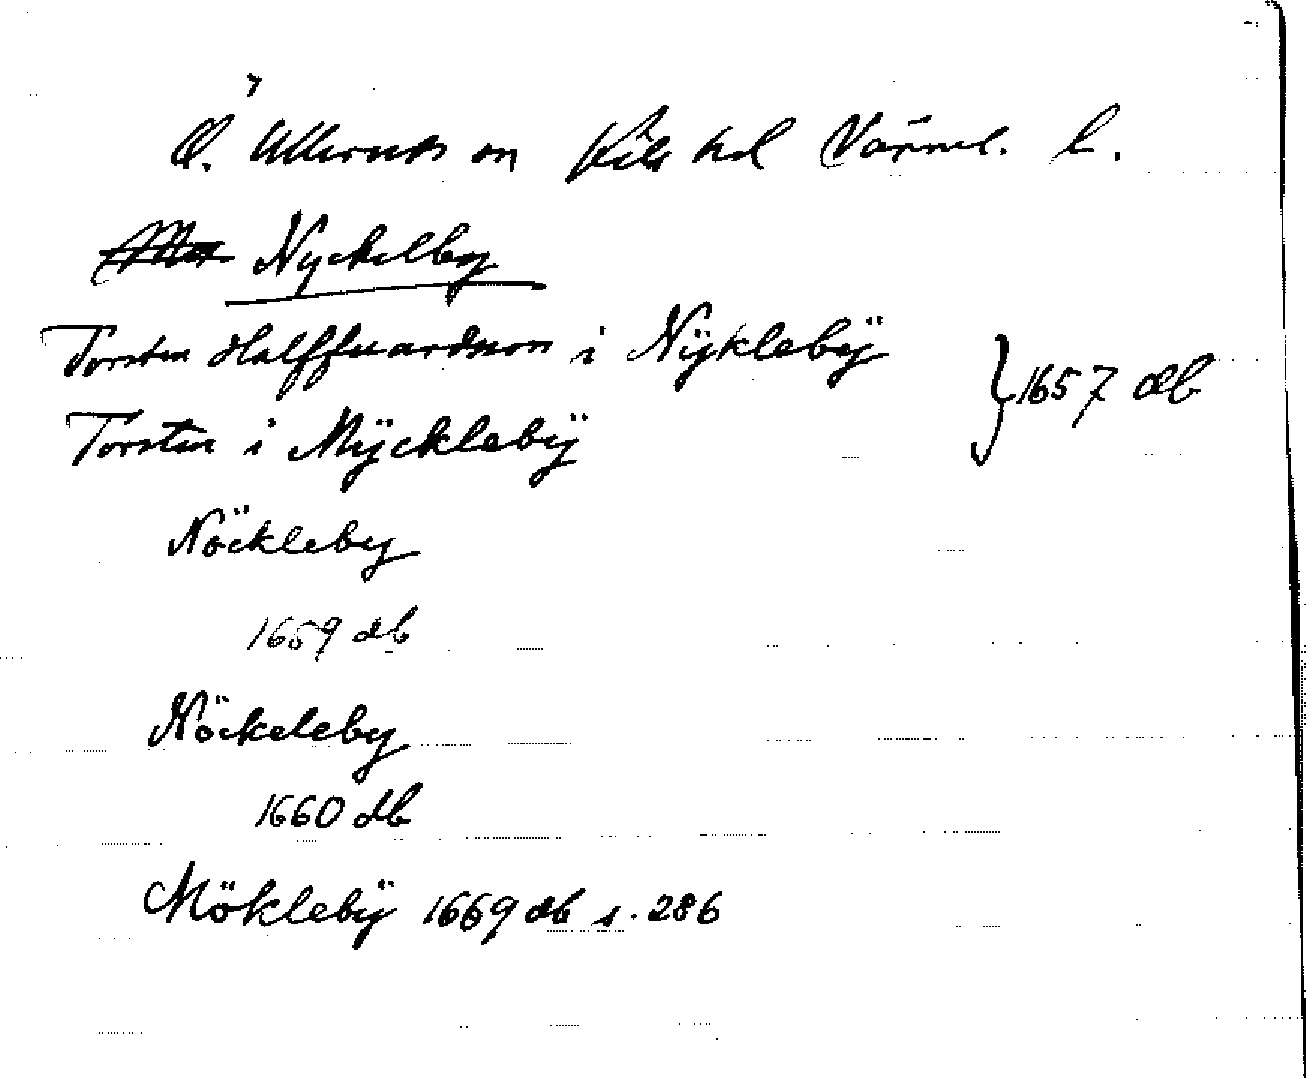 Ö. Ulleruds sn Kils hd Värml. l.
Nyckelby
Torsten Halffuardson i Nÿklebÿ } 1657 db
Torsten i Mÿcklebÿ
Nöckleby
1659 db
Nöckeleby
1660 db
Möklebÿ 1669 db s. 286